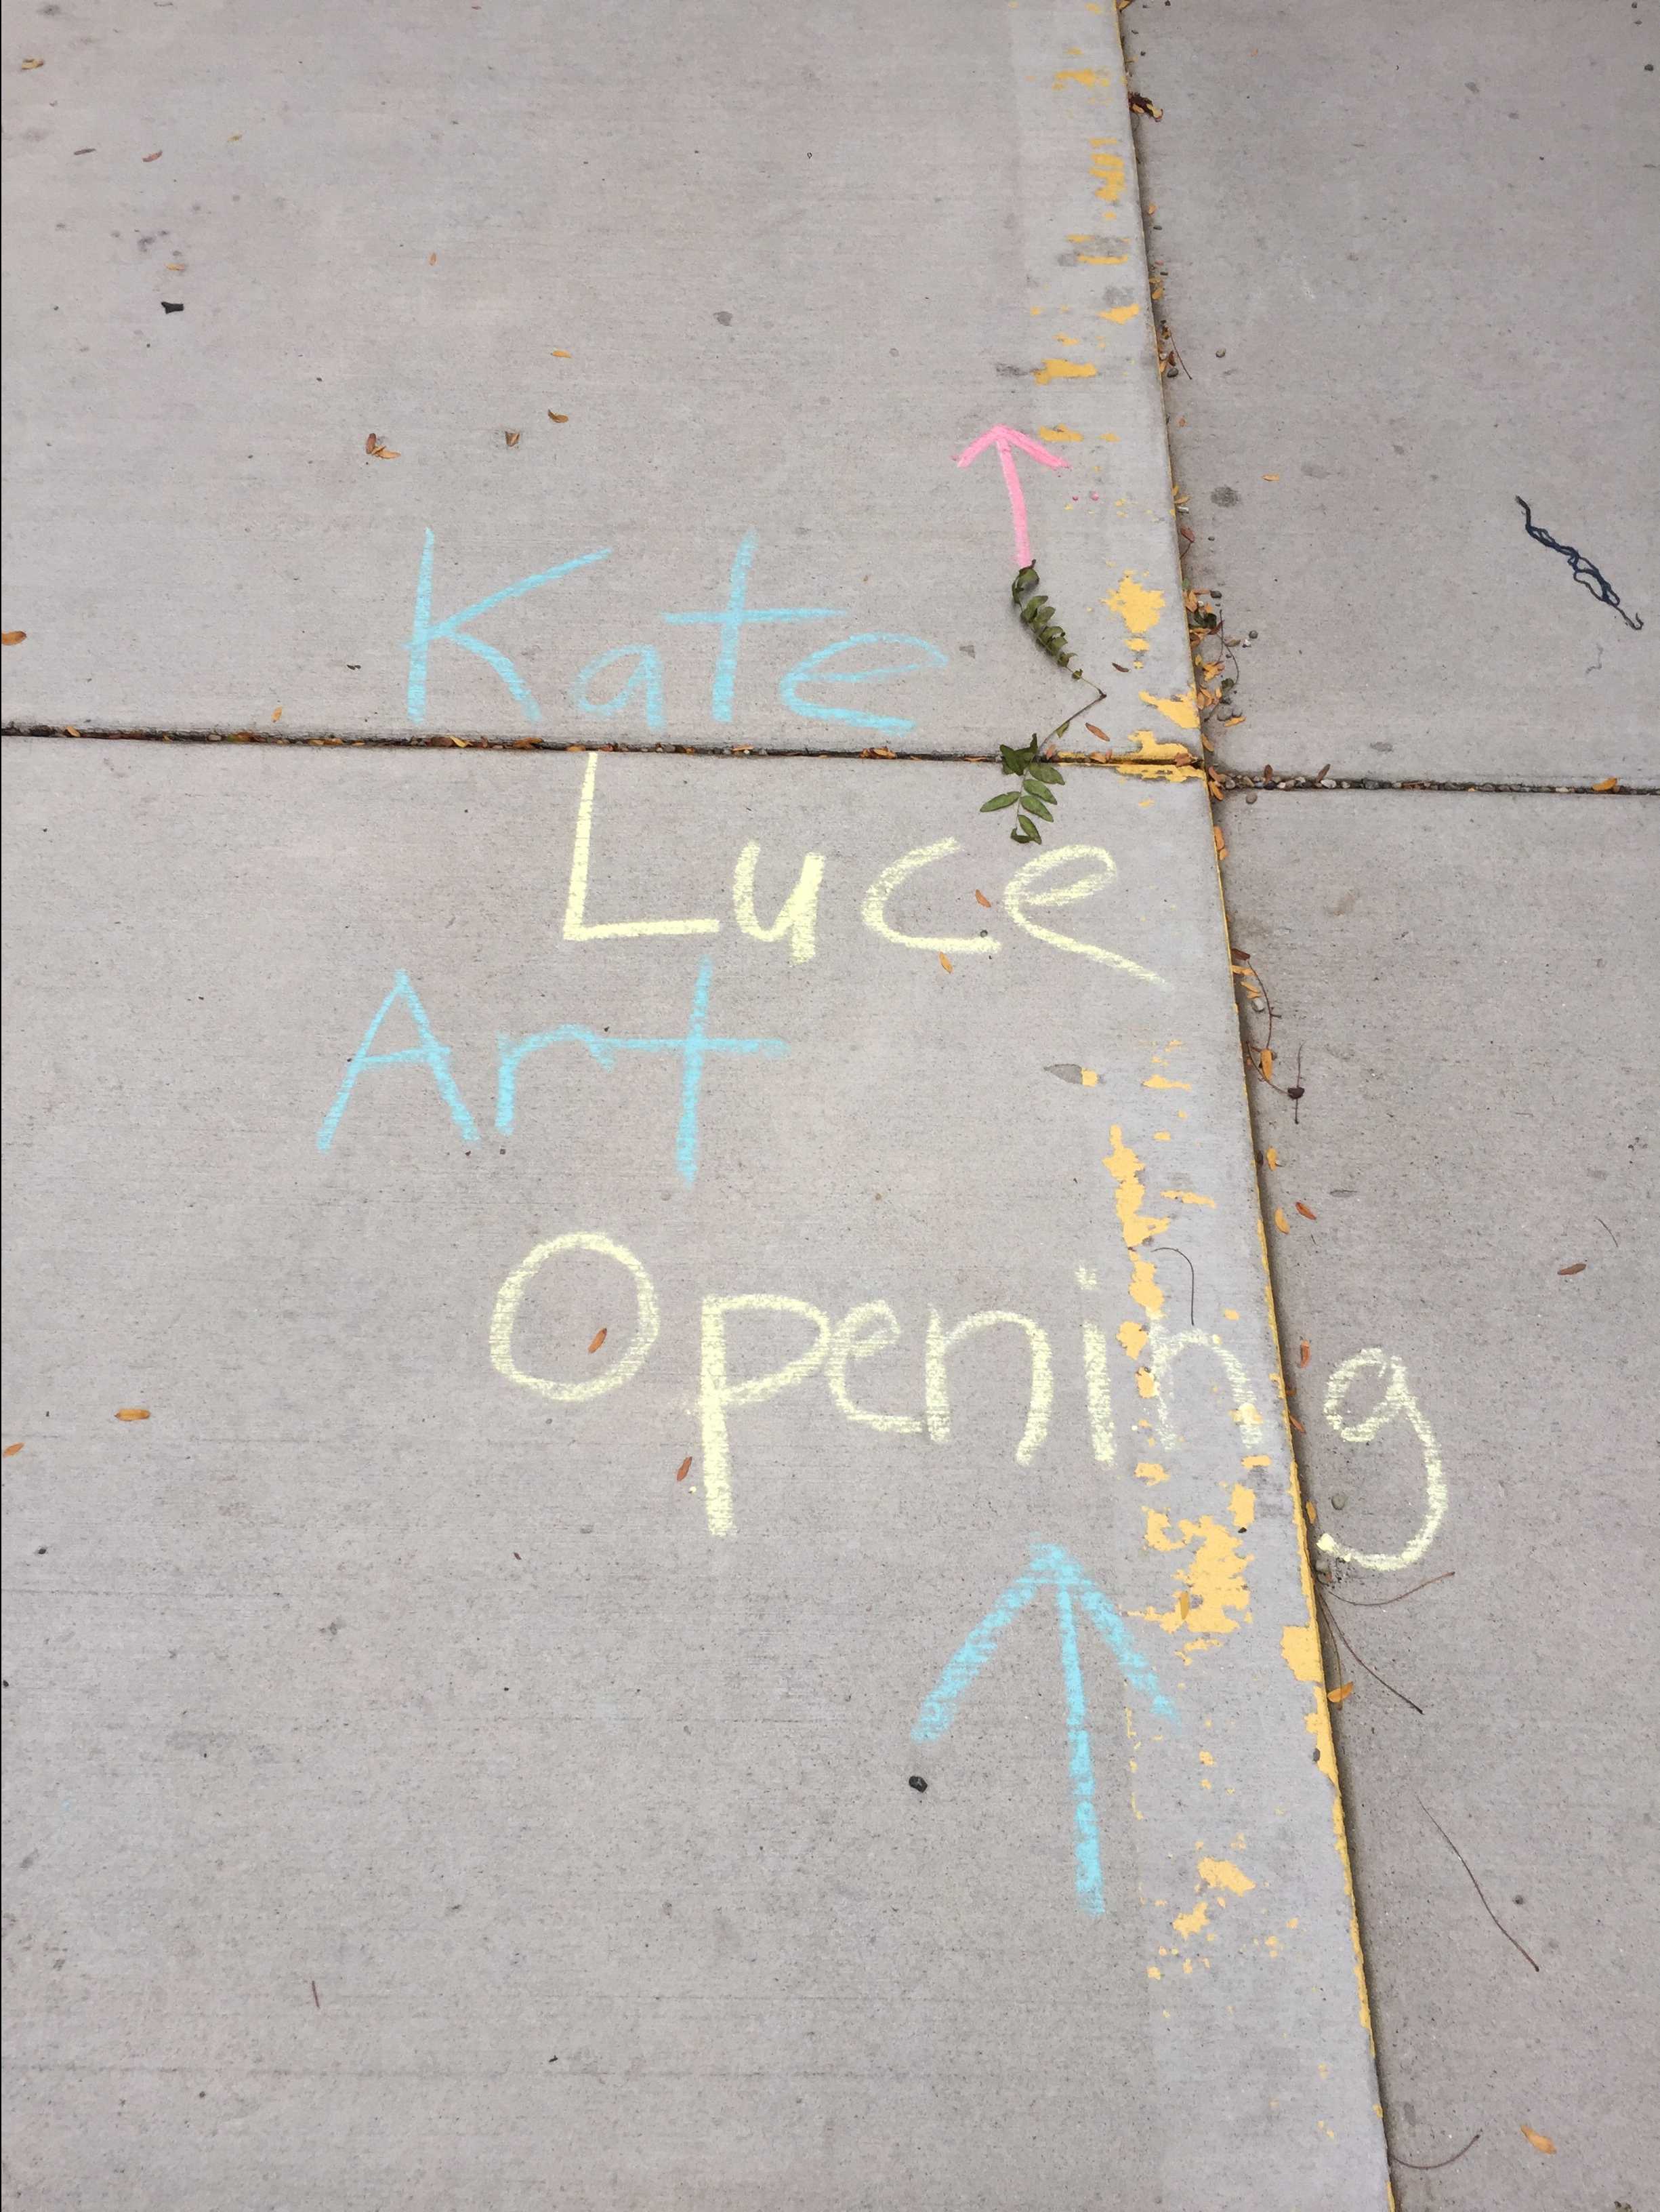 Kate
Luce
Art
Opening